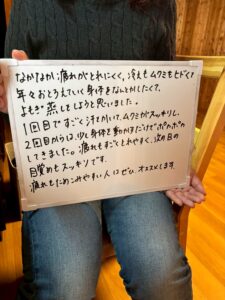 なかなか疲れがとれにくく、冷えもムクミもヒドくて
年々おとろえていく身体をなんとかしたくて、
よもぎ蒸ししようと思いました。
1回目ですごく汗をかいて、ムクミがスッキリし、
2回目からは、少し身体を動かすだけでポカポカ
してきました。疲れもすごくとれやすく、次の日の
目覚めもスッキリです。
疲れをためこみやすい人はぜひ、オススメします